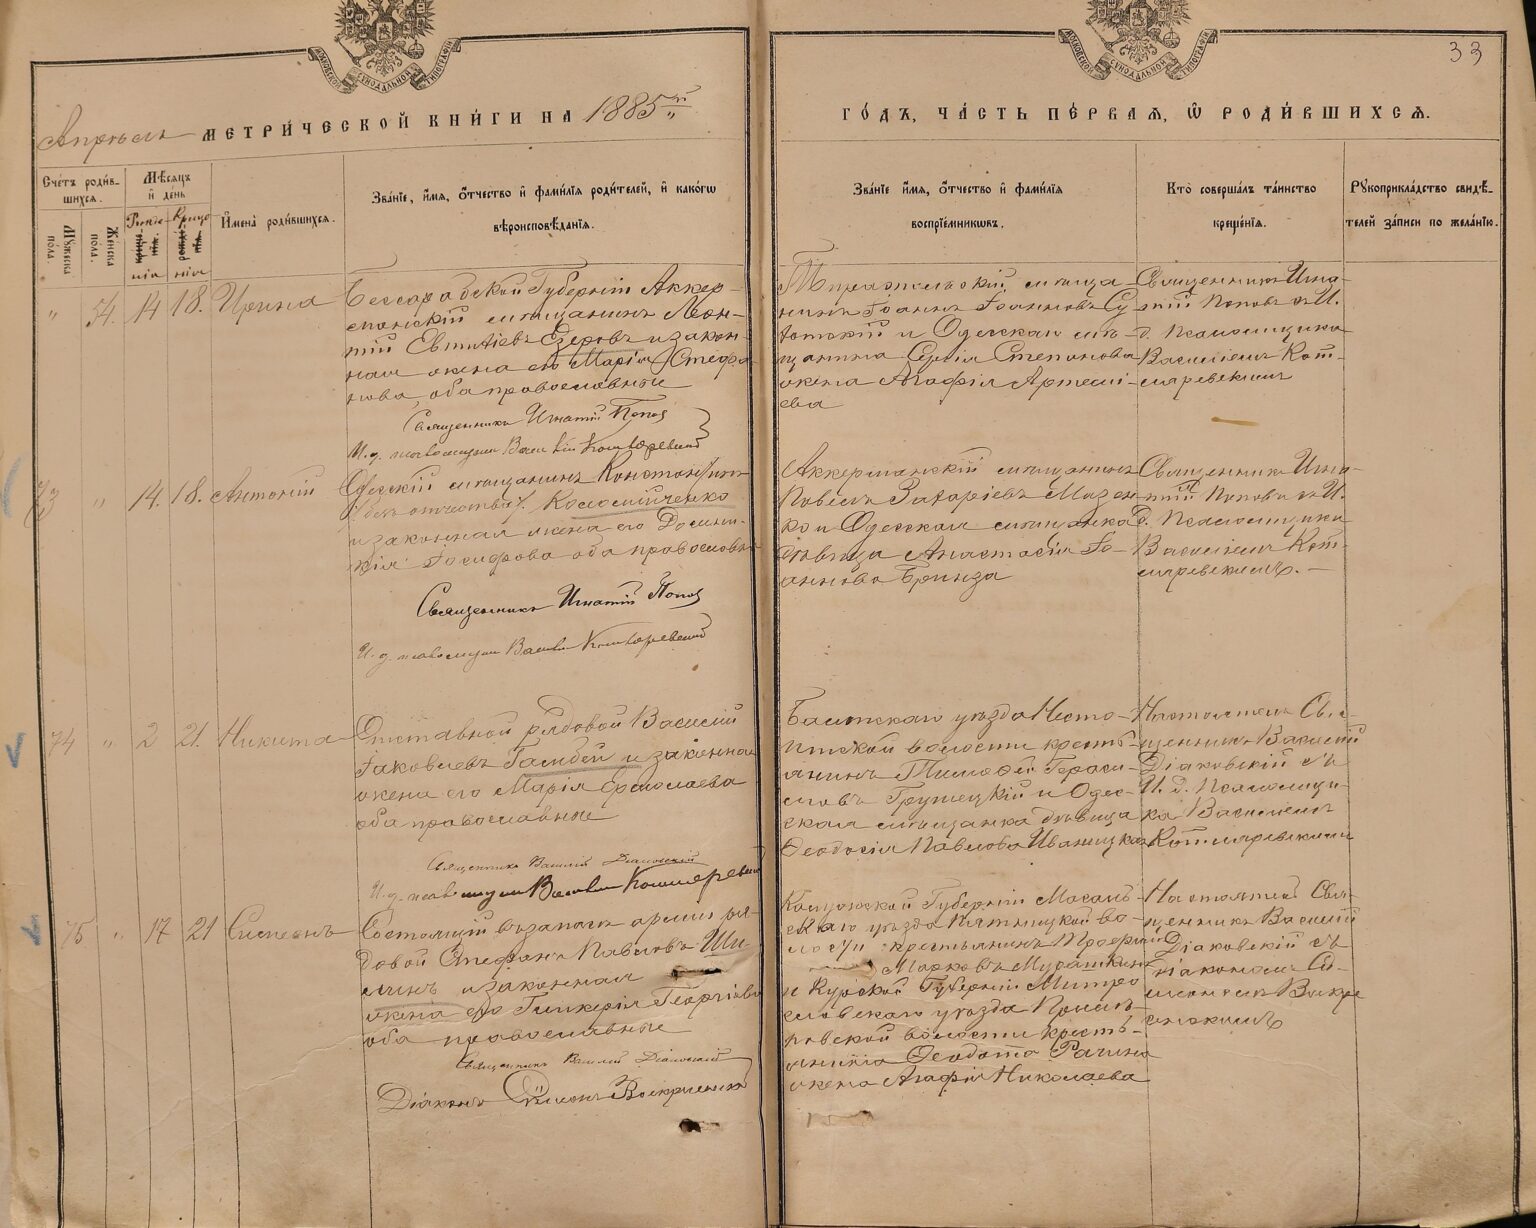 МОСКОВСКОЙ СѴНОДАЛЬНОЙ ТИПОГРАФІИ
МОСКОВСКОЙ СѴНОДАЛЬНОЙ ТИПОГРАФІИ
33
Апрель МЕТРИ́ЧЕСКОЙ КНИ́ГИ НА 1885й
ГО́ДЪ, ЧА́СТЬ ПЕ́РВАЯ, Ѿ РОДИ́ВШИХСЯ.
Сче́тъ роди́в-
шихся.
Му́жеска по́ла.
Же́нска по́ла.
Мѣ́сяцъ и де́нь
Рожде-
нія
Креще
нія
И́мена роди́вшихся.
Зва́нїе, и́мя, о́тчество и фами́лїя роди́телей, и како́гѡ
вѣроисповѣ́данїя.
Зва́нїе и́мя, о́тчество и фами́лїя
воспрїе́мниковъ.
Кто̀ соверша́лъ та́инство
креще́нїя.
Рукоприкла́дство свидѣ́-
телей за́писи по жела́нїю.
" 54. 14 18. Ирина
Бессарабской Губерніи Аккер-
манскій мѣщанинъ Леон-
тій Евтихіевъ Езеровъ и закон-
ная жена его Марія Стефа
нова, оба православные
Священникъ Игнатій Попов
И. д. псаломщика Василій Котляревскій
Тираспольскій мѣща-
нинъ Іоаннъ Іоанновъ Су
и Одесская мѣ-
щанина Сергія Степанова
жена Агафія Артеми-
ева
Священникъ Игна-
тій Поповъ съ И.
д. Псаломщика
Василіемъ Кот-
ляревскимъ
73 " 14. 18. Антоній
Одесскій мѣщанинъ Константинъ
(безъ отчества) Коломійченко
и законная жена его Домни-
кія Іосифова оба православн
Священникъ Игнатій Попов
И. д. псаломщика Василій Котляревскій
Аккерманскій мѣщанинъ
Павелъ Захаріевъ Мазен
ко и Одесская мѣщанка
дѣвица Анастасія Іо-
аннова Бринза
Священникъ Игна-
тій Поповъ съ И.
д. Псаломщика
Василіемъ Кот-
ляревскимъ. —
74 " 2 21. Никита
Отставной рядовой Василій
Іаковлевъ Гамбей и законная
жена его Марія Ермолаева
оба православные
Священникъ Василій Діаковскій
И. д. псаломщика Василій Котляревскій
Балтскаго уѣзда
волости кресть-
янинъ Тимофей Гераси-
мовъ Грушецкій и Одес-
ская мѣщанка дѣвица
Феодосія Павлова Иваницкая
Настоятель Свя-
щенникъ Василій
Діаковскій съ
И. д. Псаломщи-
ка Василіемъ
Котляревскимъ
75 " 17 21 Симеонъ
Состоящій въ запасѣ арміи ря-
довой Стефанъ Павловъ Ши-
линъ и законная
жена его Гликерія Георгіева
оба православные
Священникъ Василій Діаковскій
Діаконъ Симеонъ Воскресенскій
Калужской Губерніи Масаль-
скаго уѣзда Пятницкой во-
лости крестьянинъ
Марковъ Мурашкинъ
и Курской Губерніи
уѣзда
волости кресть-
янина Феодота Рагина
жена Агафія Николаева
Настоятель Свя-
щенникъ Василій
Діаковскій съ
діакономъ Си-
меономъ Воскре
сенскимъ